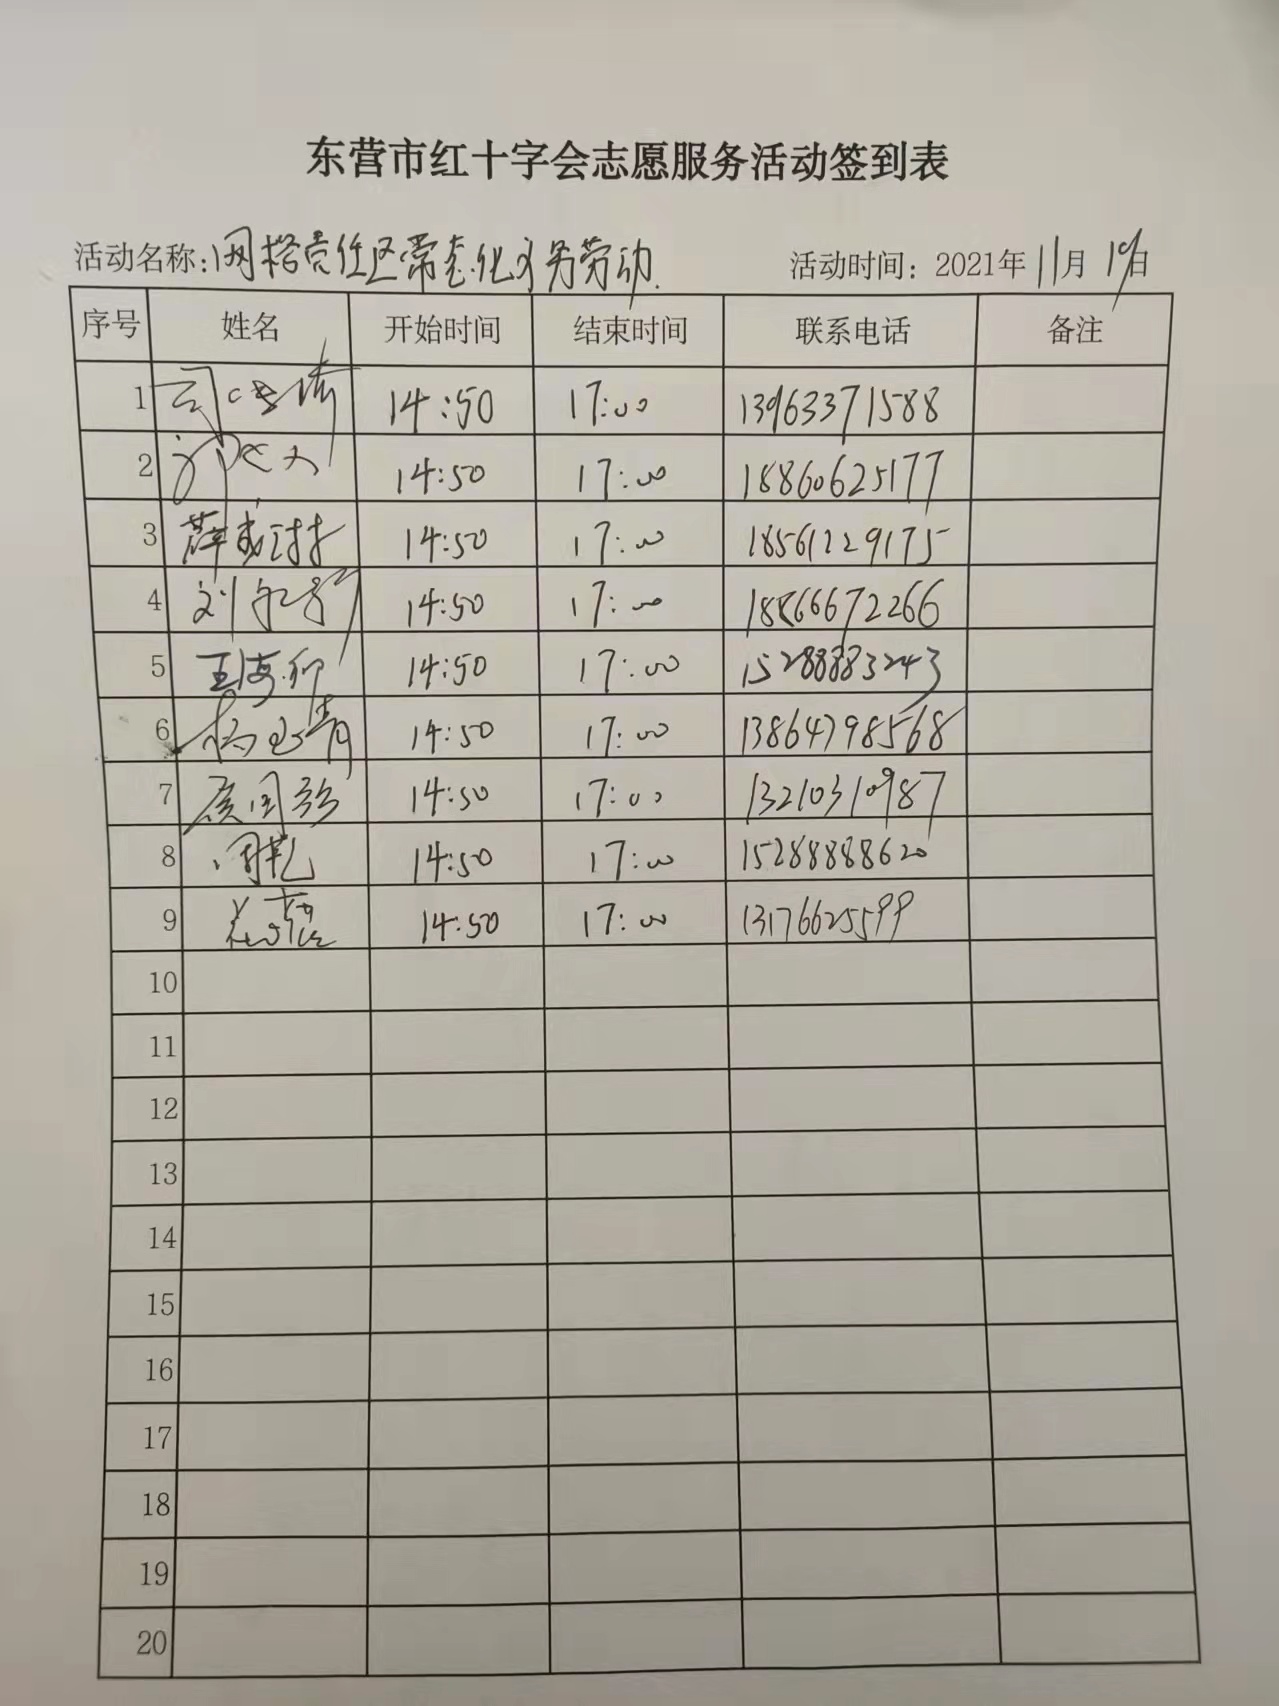 东营市红十字会志愿服务活动签到表
活动名称:网格责任区常态化义务劳动. 活动时间: 2021年11月19日
序号 姓名 开始时间 结束时间 联系电话 备注
1 14:50 17:00 13963371588
2 14:50 17:00 18860625177
3 薛 14:50 17:00 18561229175
4 刘 14:50 17:00 18866672266
5 王海 14:50 17:00 15288883243
6 杨 青 14:50 17:00 13864798568
7 国 14:50 17:00 13210310987
8 周艳 14:50 17:00 15288888620
9 14:50 17:00 13176625599
10
11
12
13
14
15
16
17
18
19
20